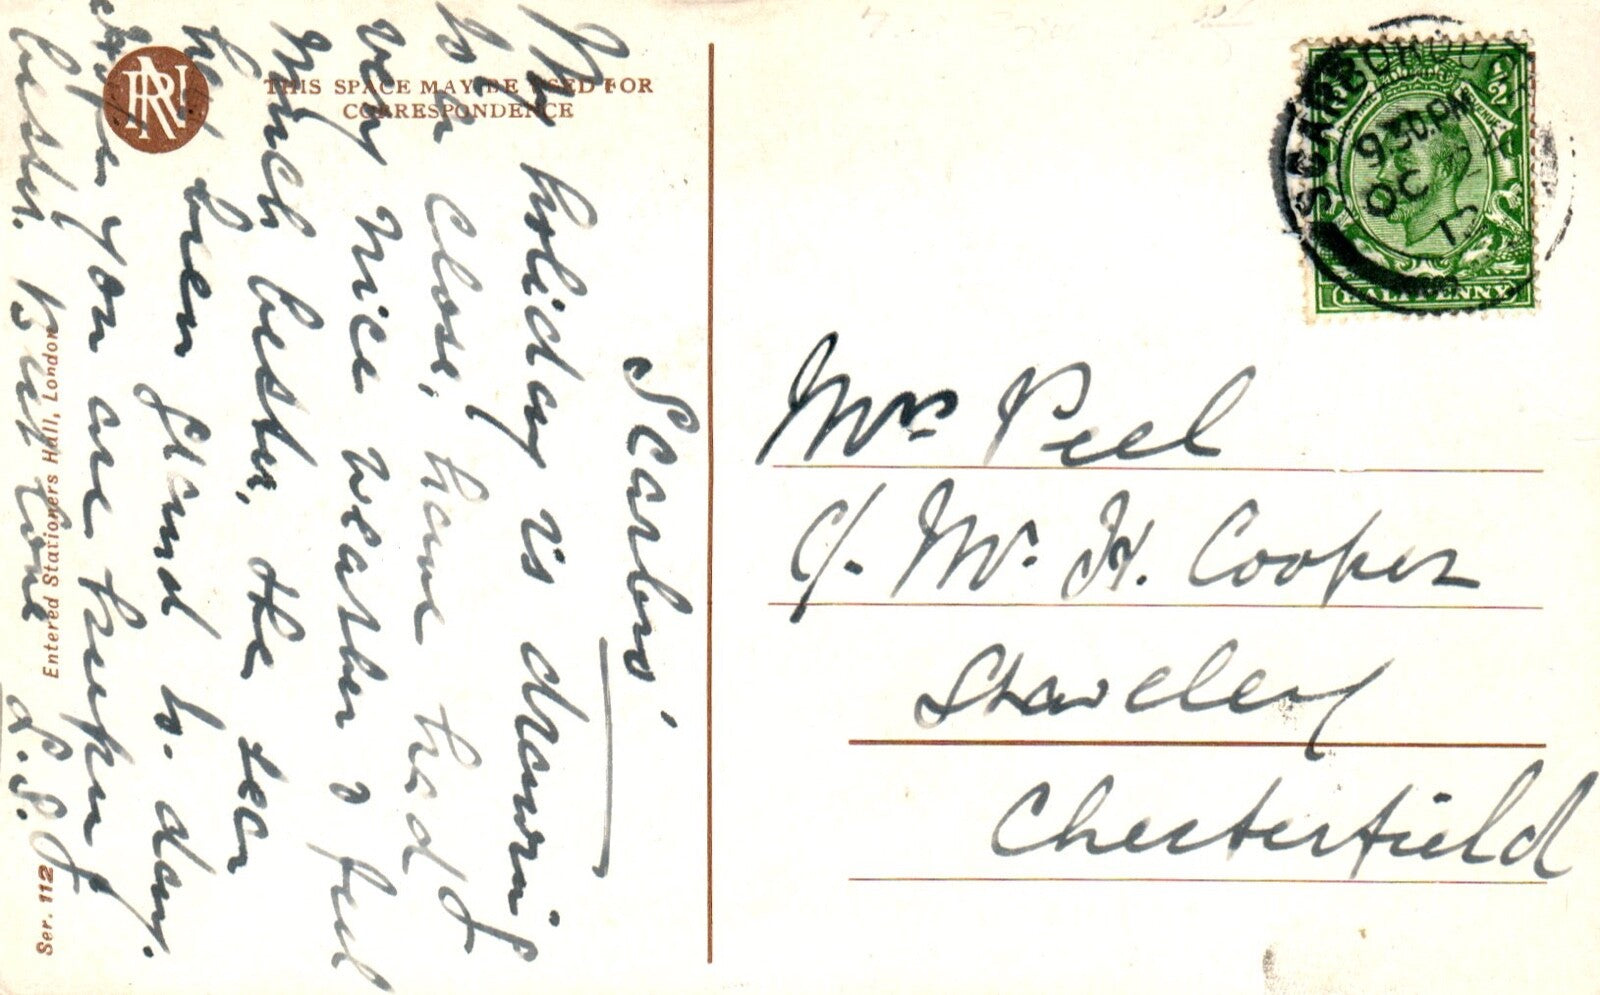 THIS SPACE MAY BE USED FOR
CORRESPONDENCE
Scarbro'
My holiday is drawing
to a close, have had
very nice weather & feel
much better, the sea
has been grand to-day.
hope you are keeping
better. Best love
L.S.J
Entered Stationers Hall, London
Ser. 112
SCARBOROUGH
9.30.PM
OC 22
12
HALFPENNY
Mrs Peel
c/. Mr. H. Cooper
Staveley
Chesterfield